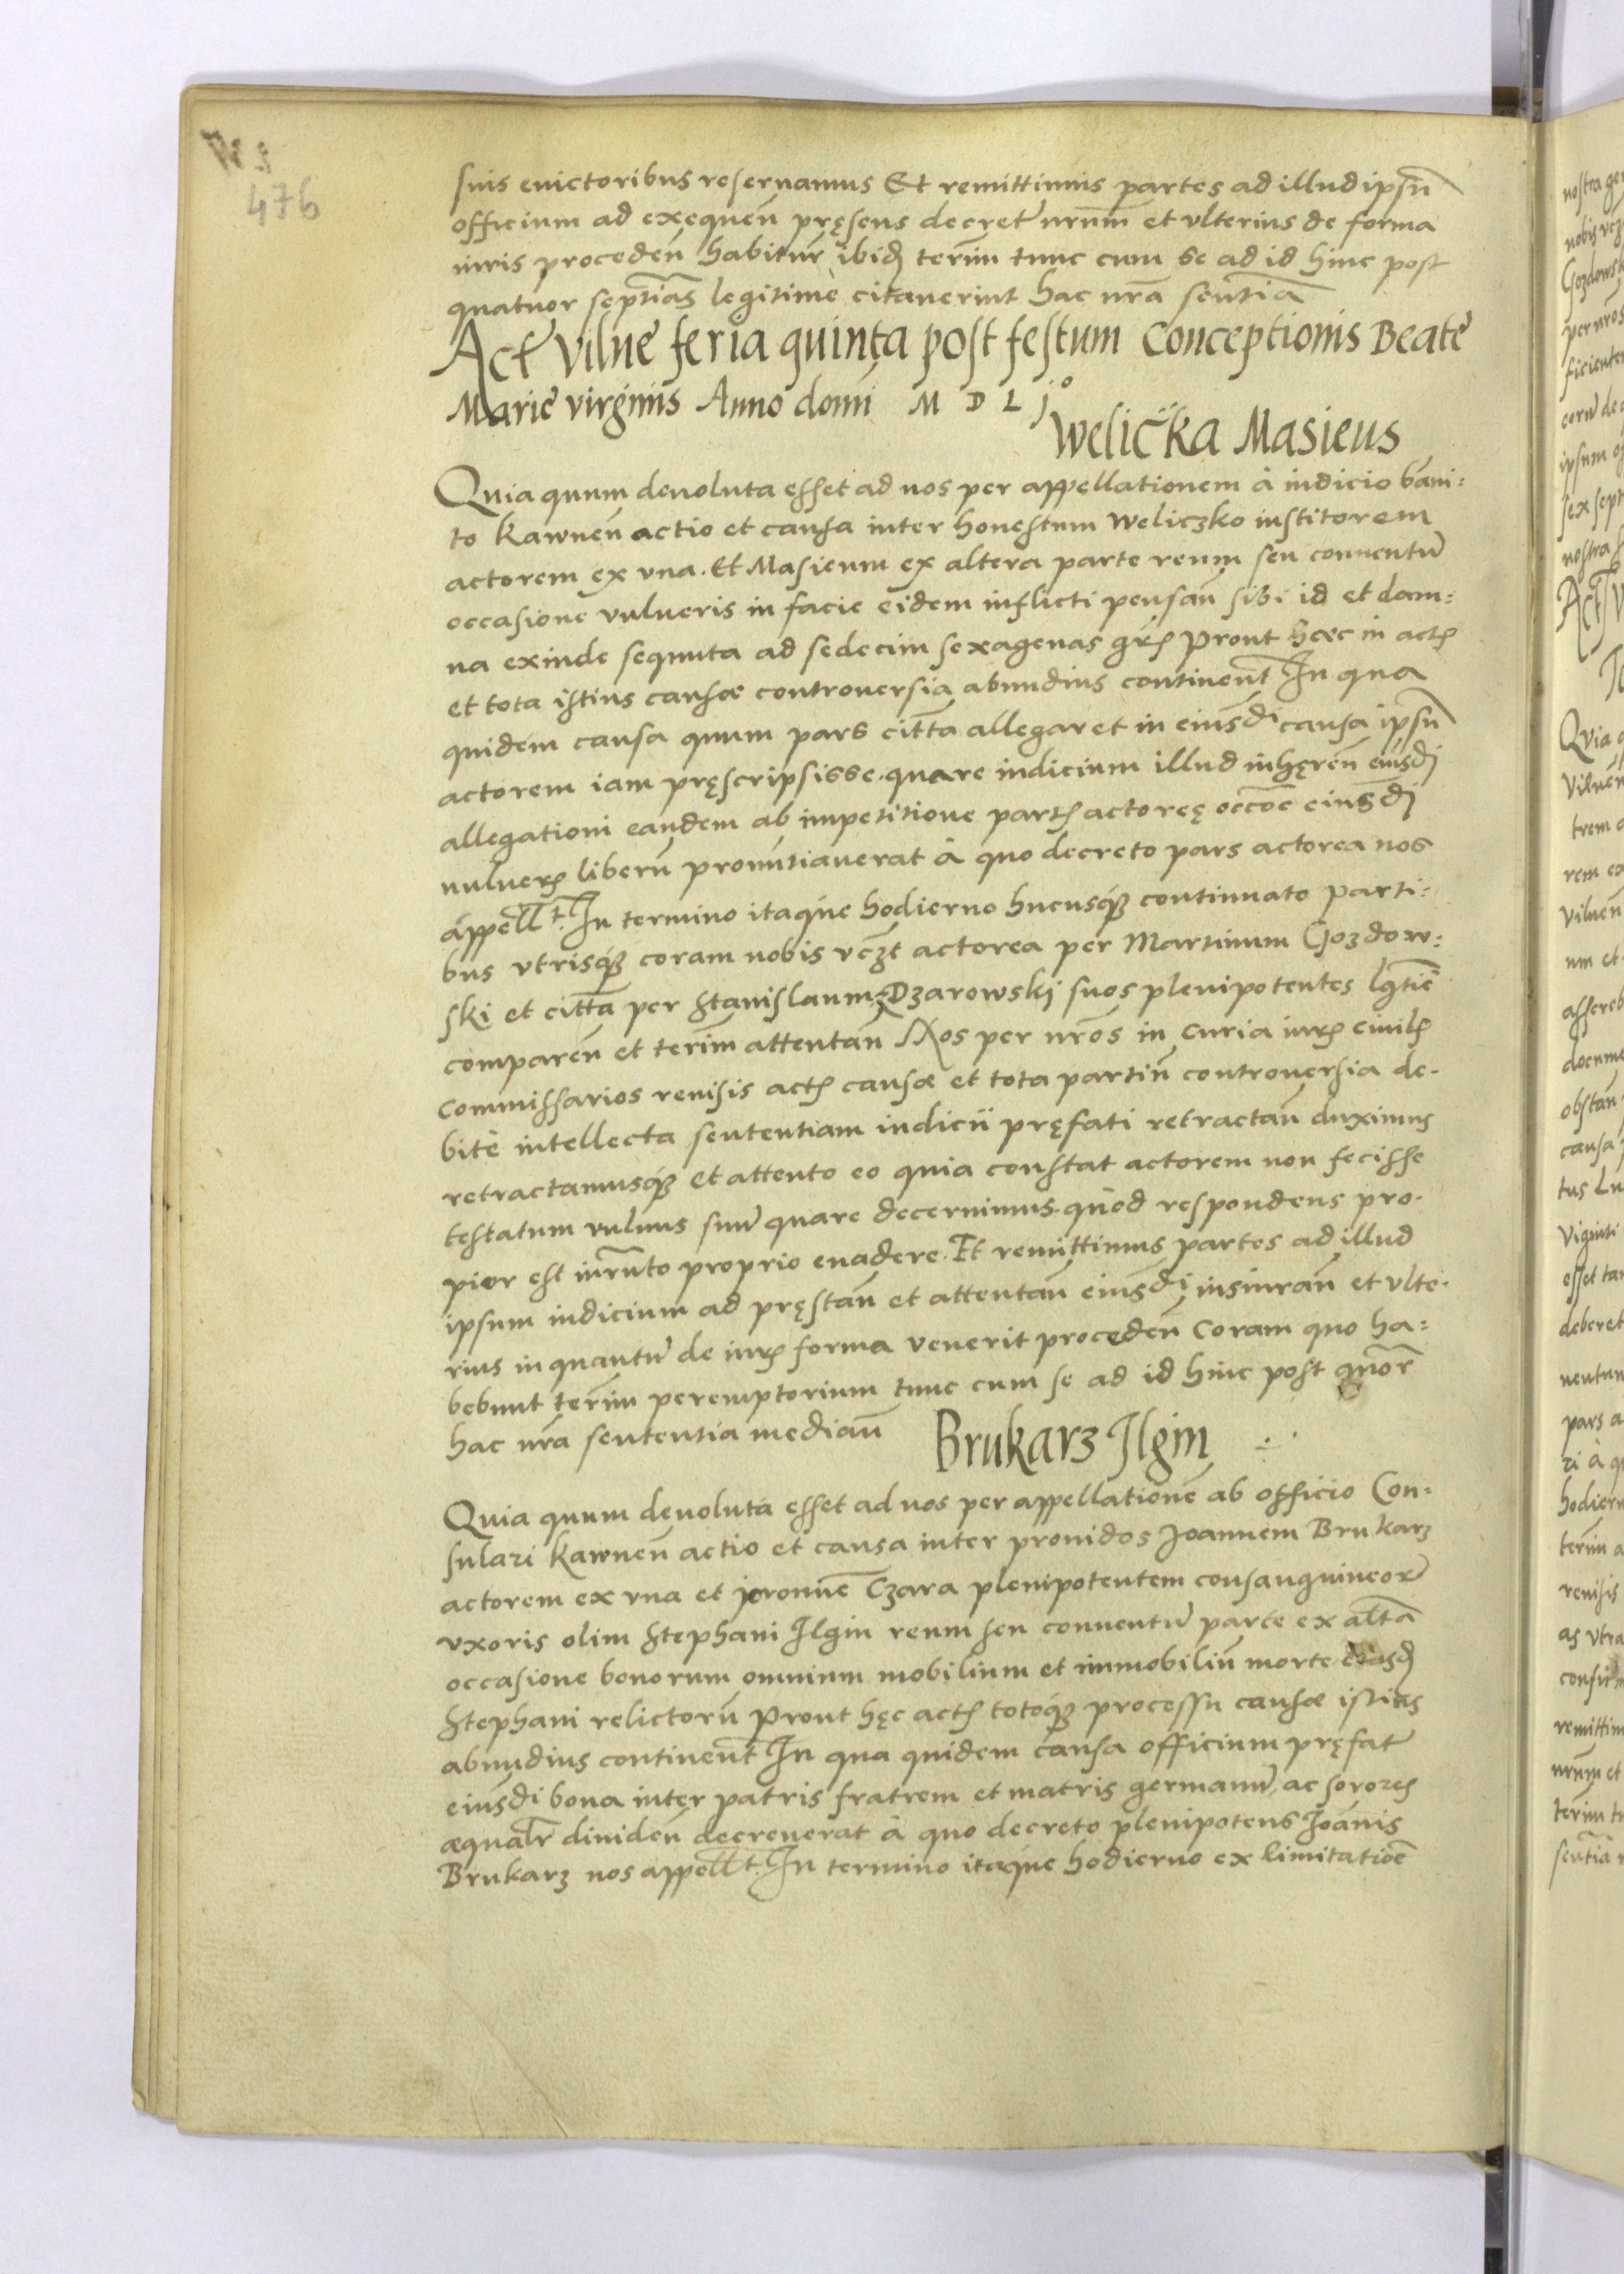 476
suis euictoribus reseruamus Et remittimus partes ad illud ipsū
officium ad exequeñ pręsens decret̃ nr̃um et vlterius de forma
iuris procedeñ habitur̃ ibid̃ ter̃im tunc cum se ad id hinc post
quatuor septĩas legitime citauerint hac nr̃a sentĩa
Act̃ Vilne feria quinta post festum Conceptionis Beate
Marie virginis Anno domi͂ M D L j°
Welic̈ka Masieus
Quia quum deuoluta esset ad nos per appellationem à iudicio bãni=
to Kawneñ actio et causa inter honestum Weliczko institorem
actorem ex vna. Et Masieum ex altera parte reum seu conuentũ
occasione vulneris in facie eidem inflicti pensañ sibi id et dam=
na exinde sequuta ad sedecim sexagenas gr̃ Prout hæc in actꝭ
et tota istius causæ controuersia abundius continent̃ In qua
quidem causa quum pars citta allegaret in eiusd̃i causa ipsũ
actorem iam pręscripsisse. quare iudicium illud inhęreñ eiusdj
allegationi eandem ab impetitione partꝭ actoreę occõe eiusdj
vulnerꝭ liberũ pronũtiauerat à quo decreto pars actorea nos
àppell̃t. In termino itaque hodierno hucusq̃ʒ continuato parti=
bus vtrisq̃ʒ coram nobis vc̃ʒt actorea per Martinum Gozdow=
ski et citta per Stanislaum Dzarowskj suos plenipotentes lg̃tiẽ
compareñ et ter̃im attentañ Nos per nr̃os in Curia iurꝭ ciuilꝭ
Commissarios reuisis actꝭ causæ et tota partiũ controuersia de-
bitè intellecta sententiam iudicii pręfati retractañ duximus
retractamusq̃ʒ et attento eo quia constat actorem non fecisse
testatum vulnus suũ quare decernimus. quod respondens pro-
pior est iur̃nto proprio euadere. Et remittimus partes ad illud
ipsum iudicium ad pręstañ et attentañ eiusd̃i insiurañ et vlte-
rius in quantũ de iurꝭ forma venerit procedeñ Coram quo ha=
bebunt ter̃im peremptorium tunc cum se ad id hinc post qũor
hac nr̃a sententia mediañ
Brukarz Jlgin
Quia quum deuoluta esset ad nos per appellationẽ ab officio Con=
sulari Kawneñ actio et causa inter prouidos Joannem Brukarz
actorem ex vna et jeronimẽ Czara plenipotentem consanguineor̃
vxoris olim Stephani Jlgin reum seu conuentũ parte ex alt̃a
occasione bonorum omnium mobilium et immobiliũ morte eiusd̃
Stephani relictorũ Prout hęc actꝭ totoq̃ʒ processu causæ istius
abundius continent̃ In qua quidem causa officium pręfat̃
eiusd̃i bona inter patris fratrem et matris germanũ ac sororeꝭ
æqualr̃ diuideñ decreuerat à quo decreto plenipotens Joãnis
Brukarz nos appell̃t. In termino itaque hodierno ex limitatiõe